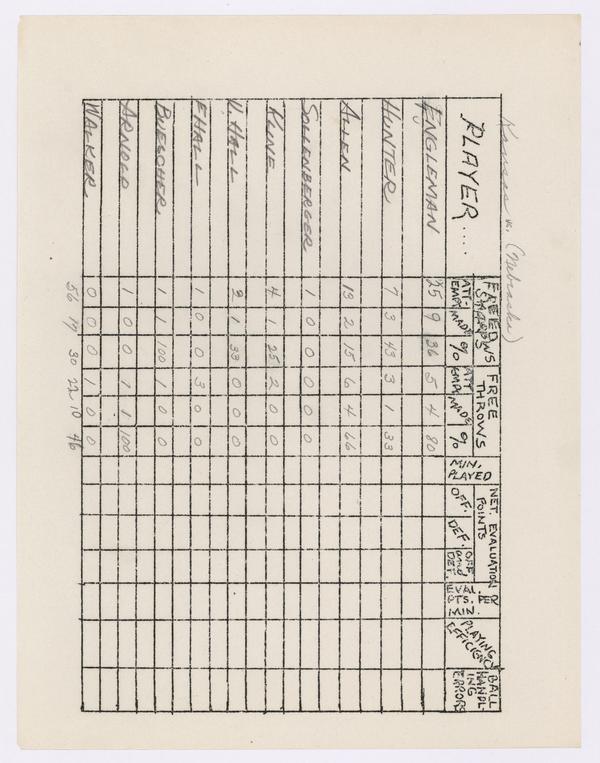 Kansas vs. (Nebraska)
PLAYER.... FIELD THROWS FREE THROWS MIN. PLAYED NET. EVALUATION POINTS EVAL. PTS. PER MIN. PLAYING EFFICIENCY BALL HANDLING ERRORS
ATT-EMPT MADE % ATT-EMPT MADE % OFF. DEF. OFF and DEF.
ENGLEMAN 25 9 36 5 4 80
HUNTER 7 3 43 3 1 33
ALLEN 13 2 15 6 4 66
SOLLENBERGER 1 0 0 0 0 0
KLINE 4 1 25 2 0 0
V. HALL 2 1 33 0 0 0
E HALL 1 0 0 3 0 0
BUESCHER 1 1 100 1 0 0
ARNOLD 1 0 0 1 1 100
WALKER 0 0 0 1 0 0
56 17 30 22 10 46